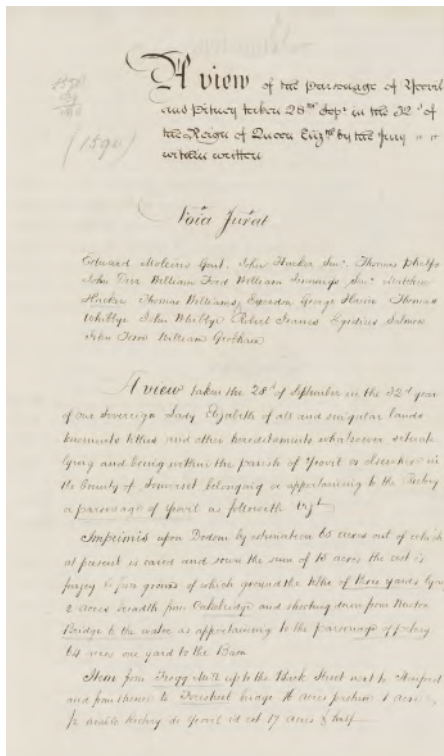 A view of the parsonage of Yeovil
and Pitney taken 28th Sepr in the 32d of
the Reign of Queen Elizth by the Jury
within written
(1590)
Noia Jurat
Edward Moleins Gent. John Hacker Senr. Thomas Phelps
John Dier William Ford William Jennings Senr. Matthew
Hacker Thomas Williams George Thomas
Whibbye John Whibbye Robert Egidius Salmon
John William
A view taken the 28th of September in the 32d year
of our Sovereign Lady Elizabeth of all and singular lands
tenements tithes and other hereditaments whatsoever situate
lying and being within the parish of Yeovil or elsewhere in
the County of Somerset belonging or appertaining to the Rectory
or parsonage of Yeovil as followeth vizt
Imprimis upon by estimation 65 acres out of which
at present is eared and sown the sum of 15 acres the rest is
furzey & ground of which ground the tithe of three yards lying
2 acres breadth from Oakebridge and shooting down from Newton
Bridge to the water as appertaining to the parsonage of
64 acres one yard to the Barn
Item from Frogg Mill up to the Back Street next to
and from thence to Forestreet bridge 16 acres 1 acre
½ arable Rectory de Yeovil id est 17 acres & half